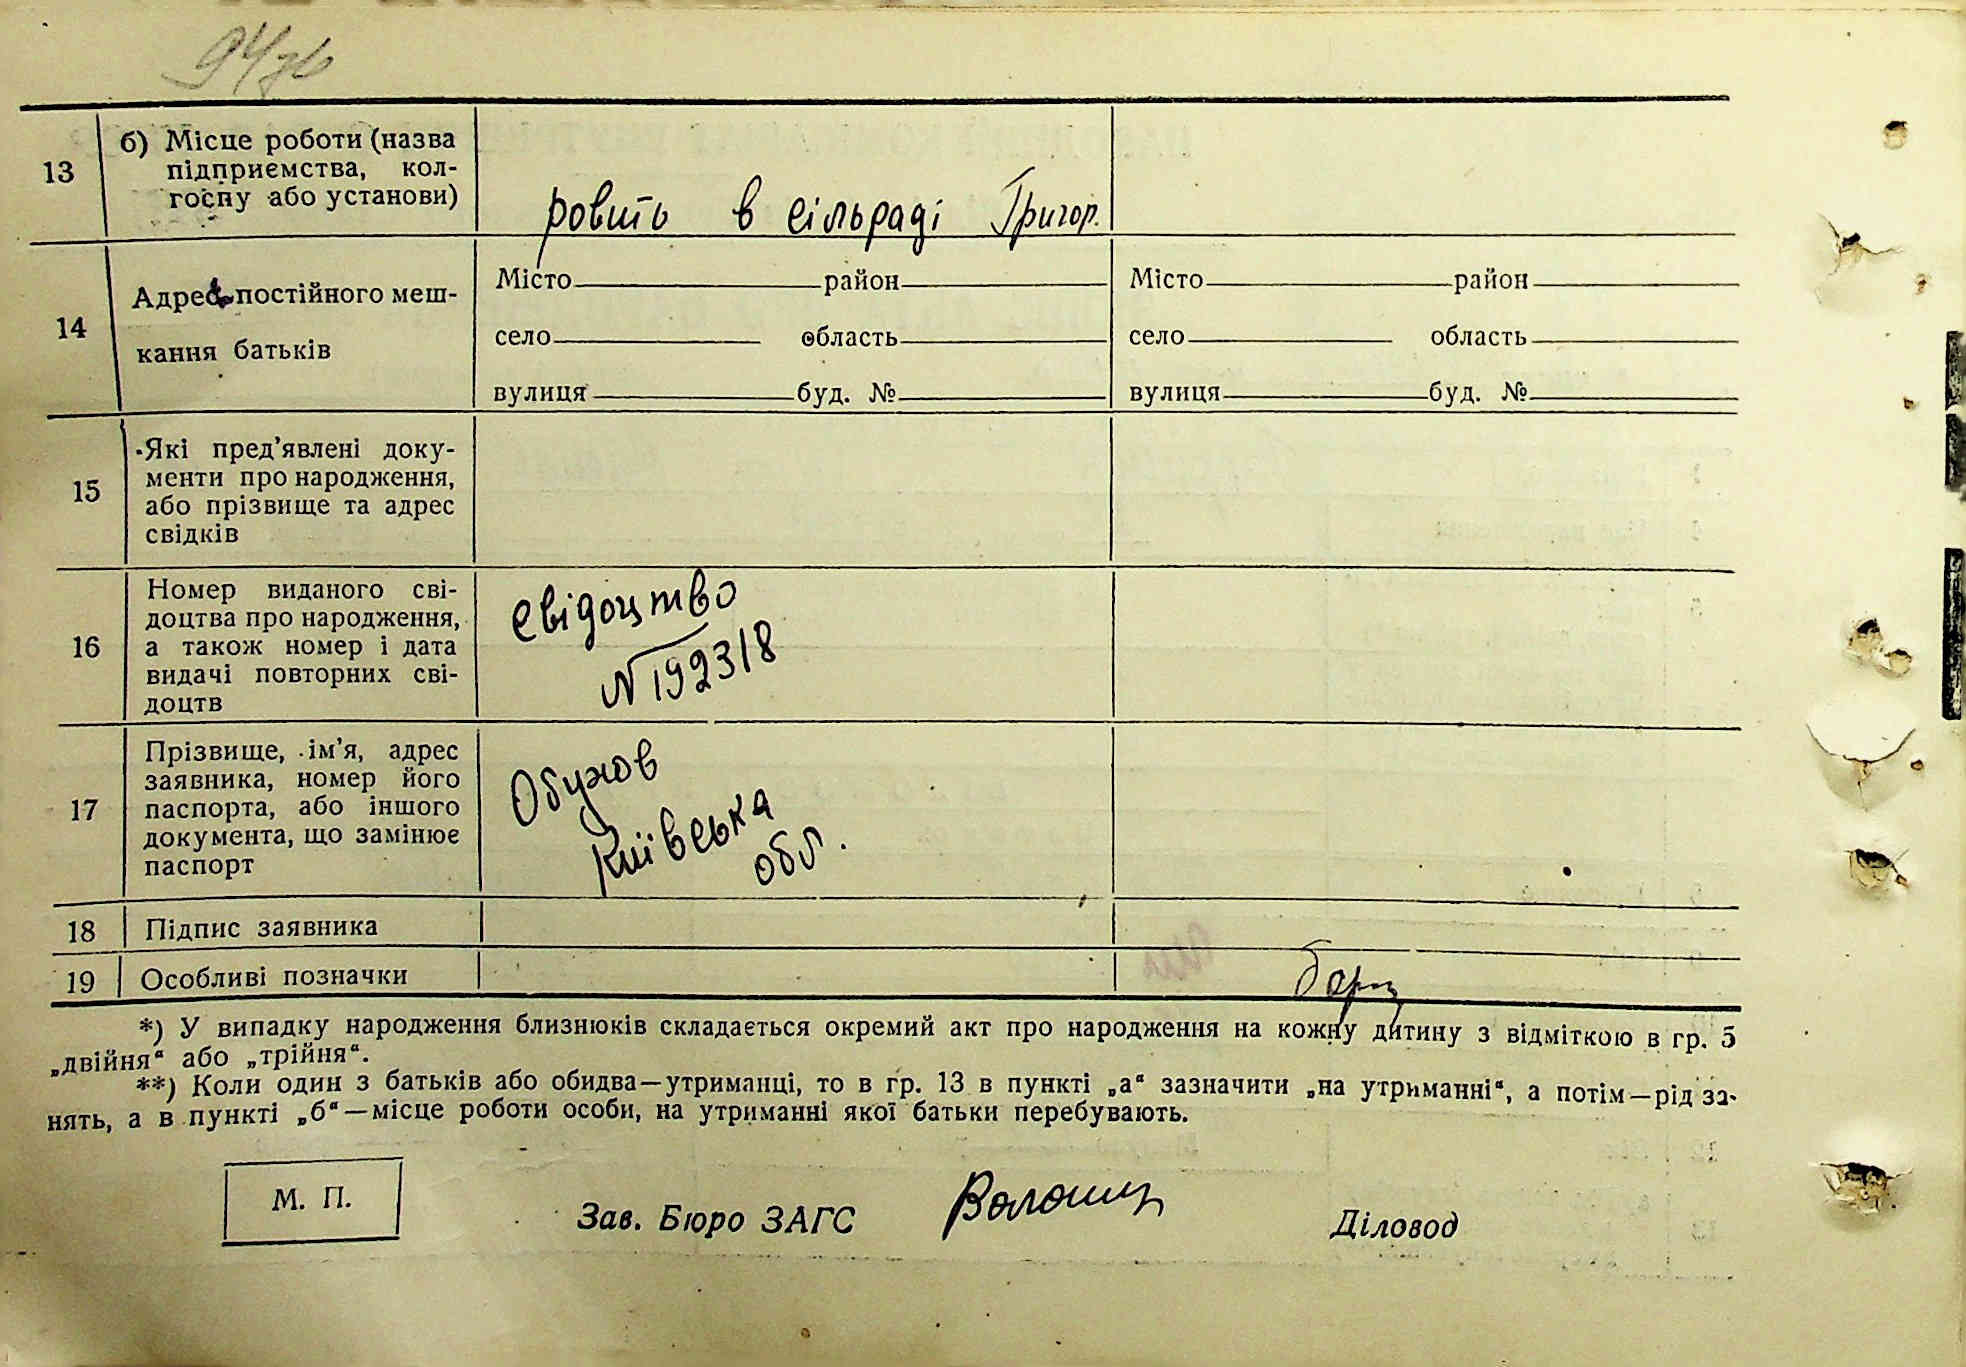 13
б) Місце роботи (назва
підприємства, кол-
госпу або установи)
ровить в сільраді Григор.
14
Адреса постійного меш-
кання батьків
Місто район Місто район
село область село область
вулиця буд. № вулиця буд. №
15
Які пред’явлені доку-
менти про народження,
або прізвище та адрес
свідків
16
Номер виданого сві-
доцтва про народження,
а також номер і дата
видачі повторних сві-
доцтв
свідоцтво
№ 192318
17
Прізвище, ім’я, адрес
заявника, номер його
паспорта, або іншого
документа, що замінює
паспорт
Обухов
Київська
обл.
18 Підпис заявника
19 Особливі позначки
*) У випадку народження близнюків складається окремий акт про народження на кожну дитину з відміткою в гр. 5
„двійня“ або „трійня“.
**) Коли один з батьків або обидва—утриманці, то в гр. 13 в пункті „а“ зазначити „на утриманні“, а потім—рід за-
нять, а в пункті „б“—місце роботи особи, на утриманні якої батьки перебувають.
М. П.
Зав. Бюро ЗАГС Волошин Діловод